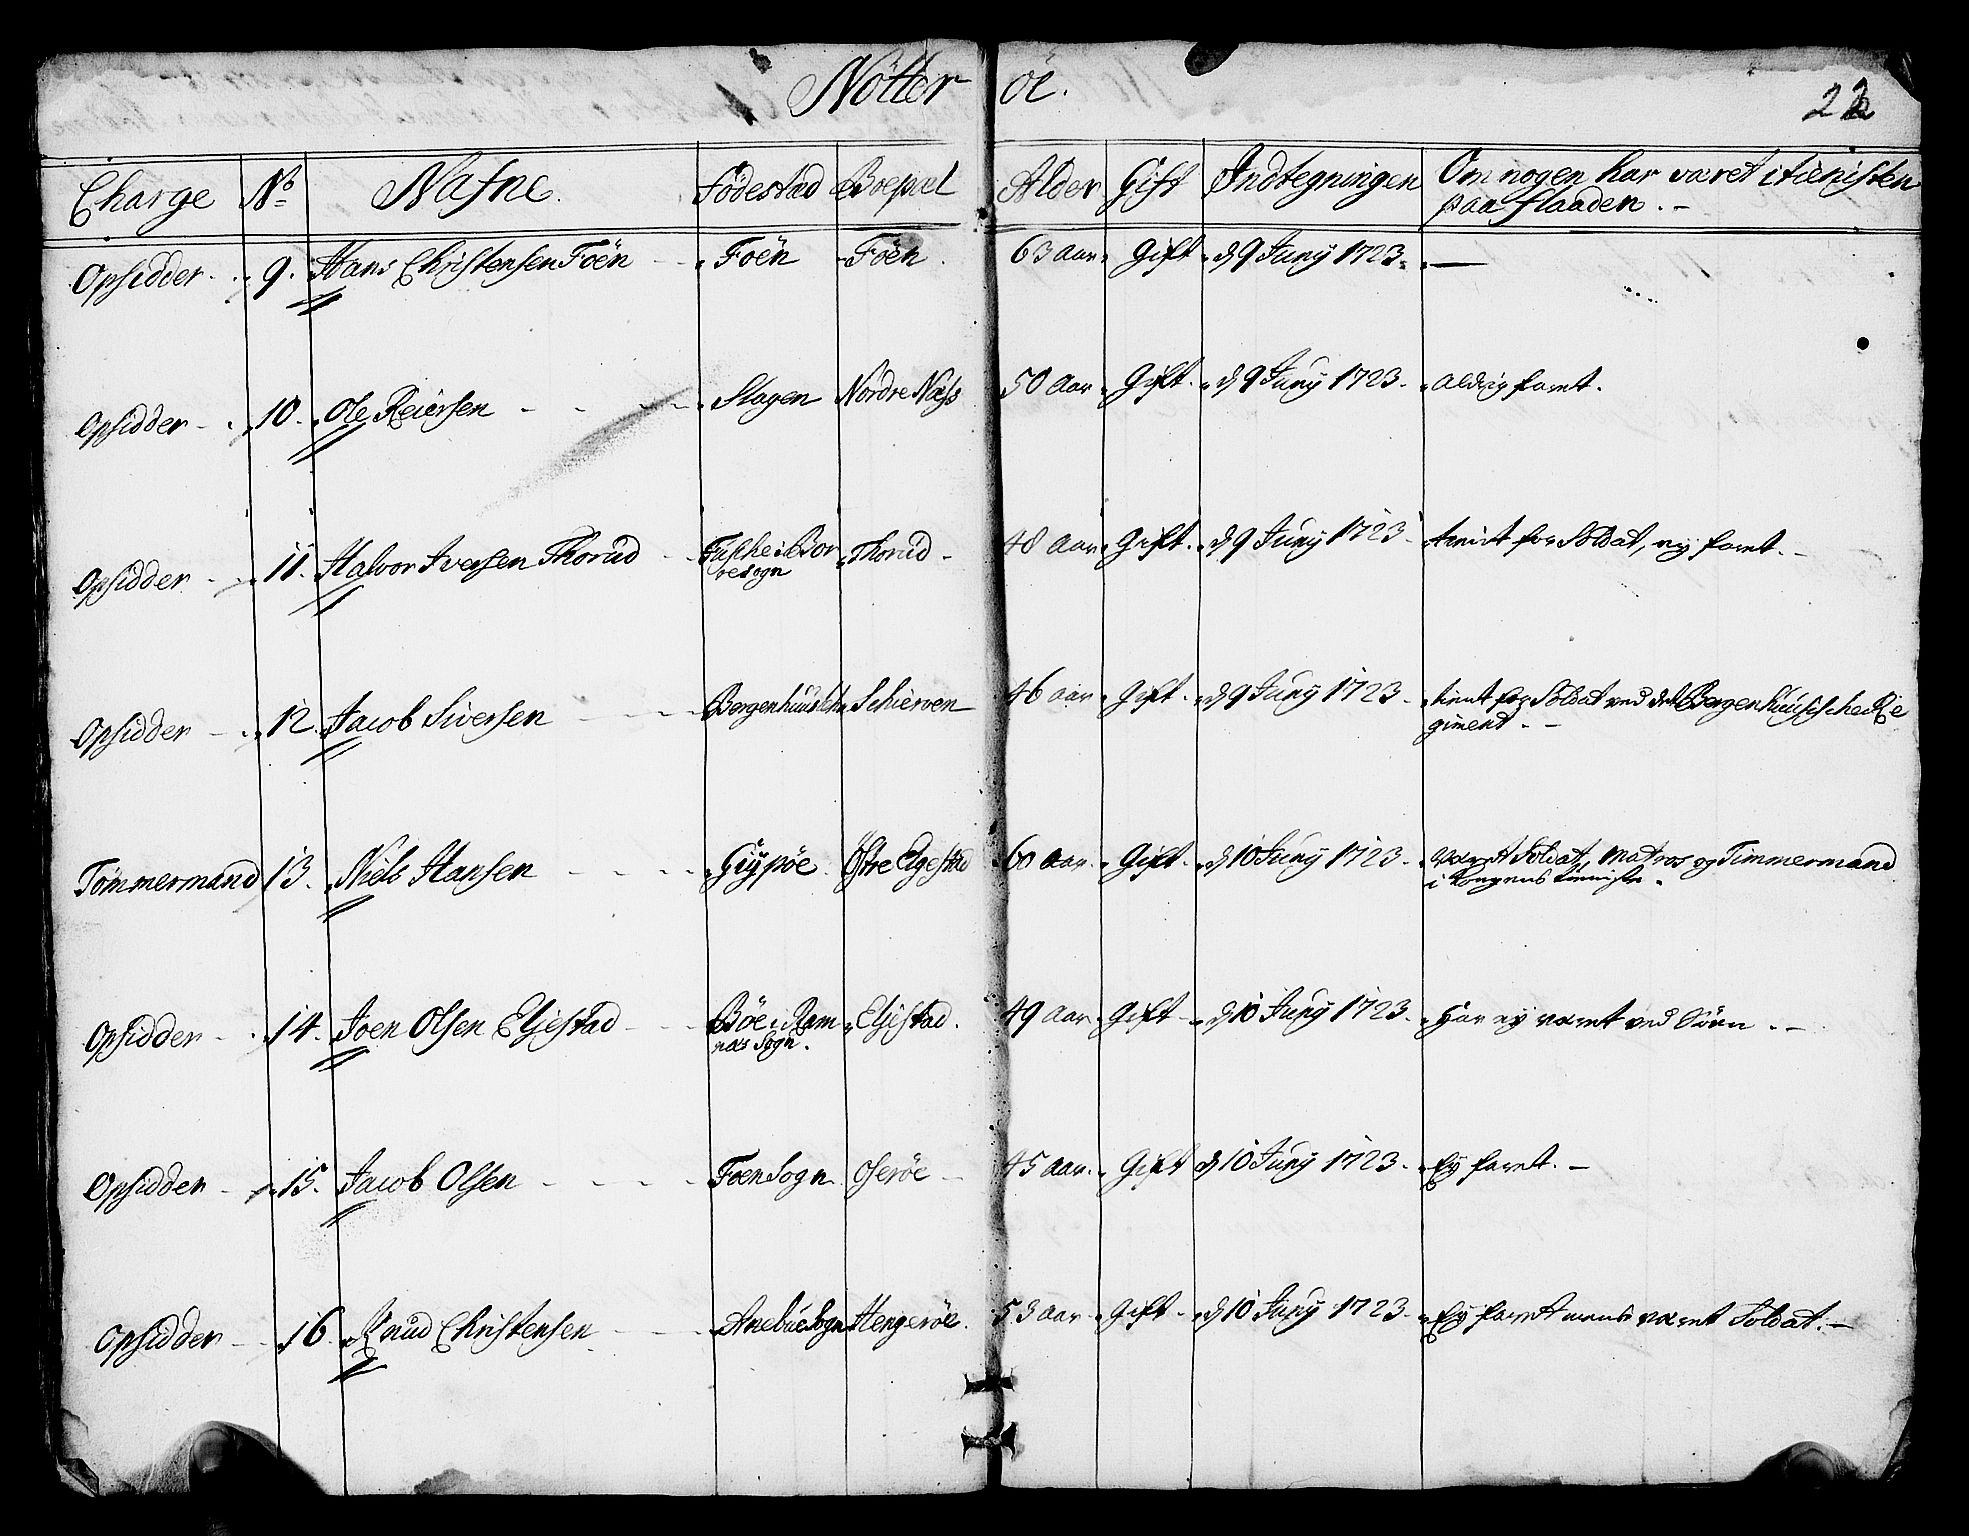 Nötter öe.
22
Charge No Nafne. Födestad Boepæl Alder Gift Indtegningen Om nogen har været i tienisten
paa flaaden. -
Opsidder 9. Hans Christensen Föen Föen Föen. 63 aar. Gift d 9 Juny 1723. -
Opsidder 10. Ole Reiersen Slagen Nordre Næss 50 aar. Gift. d 9 Juny 1723. aldrig faret.
Opsidder 11. Halvor Iversen Thorud i Bor Thorud 48 aar. Gift. d 9 Juny 1723. tient for Soldat, ey faret. -
re sogn
Opsidder 12. Jacob Siversen Bergenhuus Schierven 46 aar. Gift. d 9 Juny 1723. tient for Soldat ved det Bergenhuusische Re
giment. -
Tömmermand 13. Niels Hansen Giypöe Östre Elgestad 60 aar. Gift. d 10 Juny 1723. været Soldat, Matros og Timmermand
i Kongens tieniste.
Opsidder 14. Joen Olsen Eljestad Böe i Ram Eljestad. 49 aar. Gift d 10 Juny 1723. Har ey været ved Söen. -
næs Sogn.
Opsidder 15. Jacob Olsen Föen Sogn Oseröe 45 aar. Gift d 10 Juny 1723. Ey faret. -
Opsidder 16. Knud Christensen Anebue Sogn Hengeröe. 53 aar. Gift d 10 Juny 1723. Ey faret mens været Soldat. -